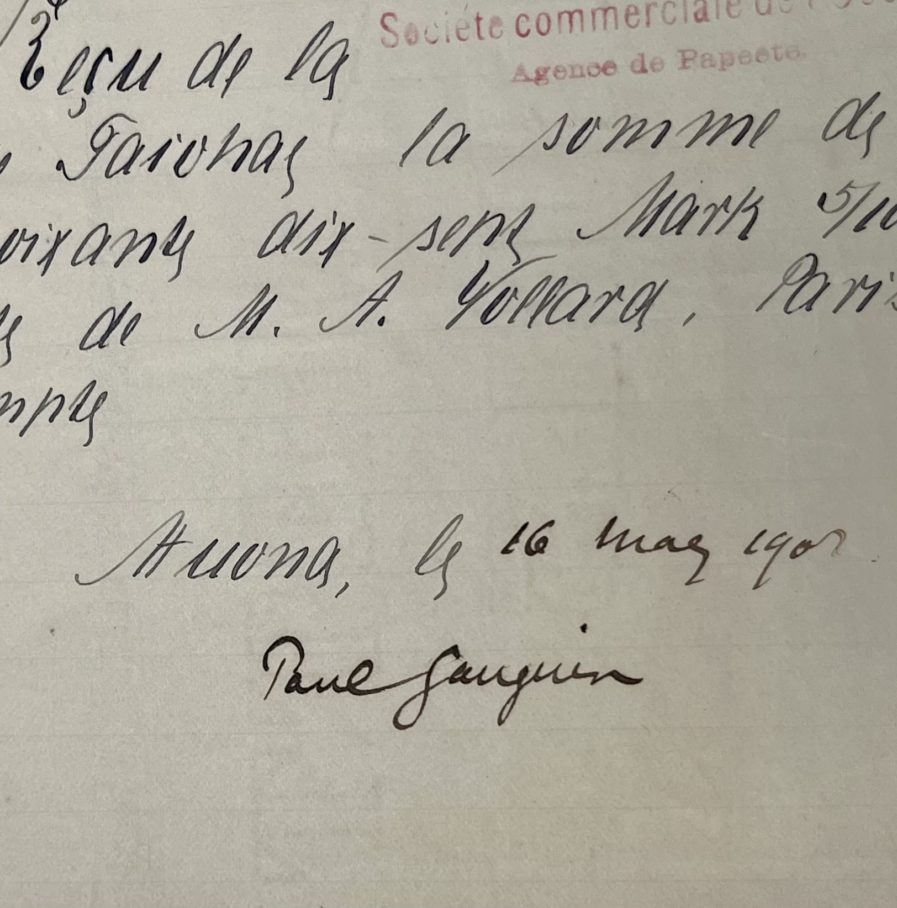 Société commerciale de l'Océ
Agence de Papeete.
Reçu de la
Taiohae la somme de
oixante dix-sept Mark 5/10
de M. A. Vollard, Paris
mpte
Atuona, le 16 mars
Paul Gauguin